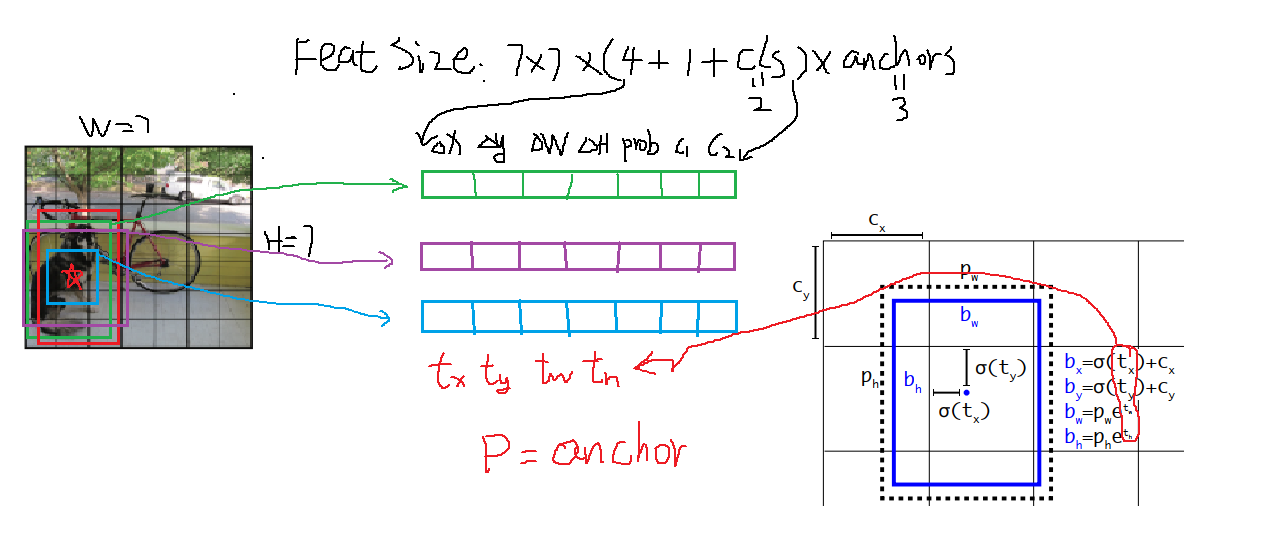 Feat Size: 7x7 x(4+1+cls)x anchors
=2
=3
W=7
Δx Δy ΔW ΔH prob C1 C2
H=7
tx ty tw th
P=anchor
cx
cy
pw
bw
ph
bh
σ(ty)
σ(tx)
bx=σ(tx)+cx
by=σ(ty)+cy
bw=pwe^tw
bh=phe^th